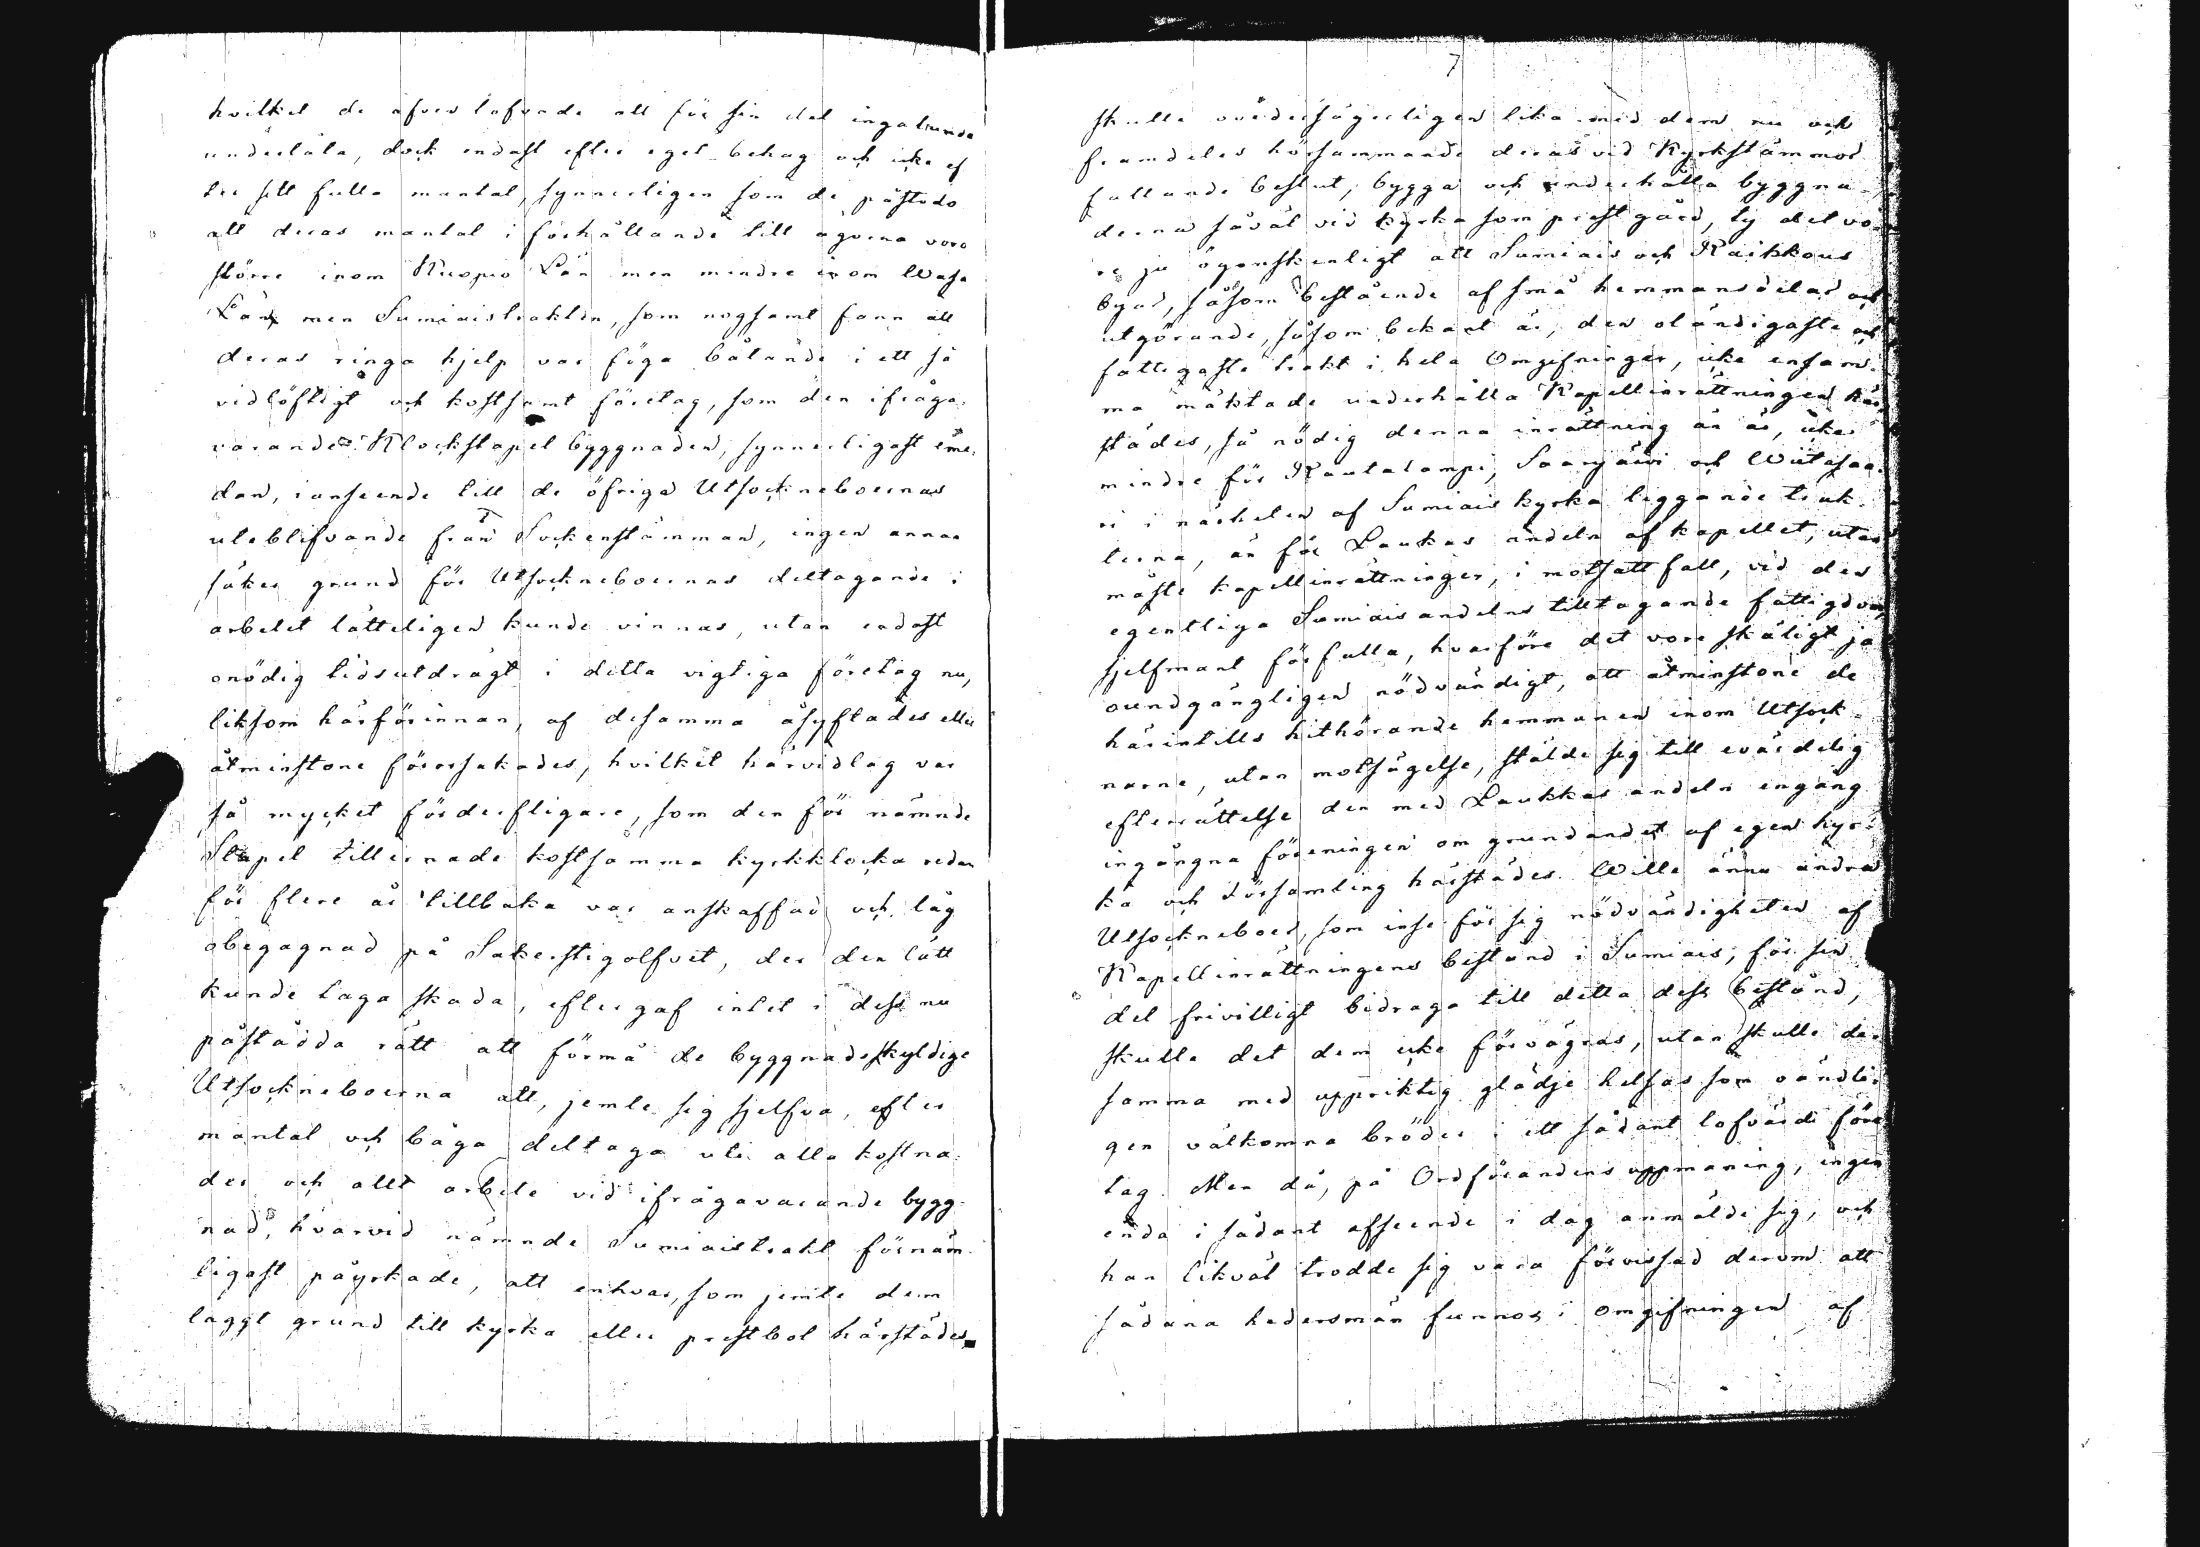 hvilket de äfven lofvade att för sin del ingalunda
underlåta, dock endast efter eget behag och icke ef
ter sitt fulla mantal, synnerligen som de påstodo
att deras mantal i förhållande till ägorna voro
större inom Kuopio Län men mindre inom Wasa
Län men Sumiaistrakten, som nogsamt fann att
deras ringa hjelp var föga båtande i ett så
vidlöftigt och kostsamt företag, som den ifråga-
varande Klockstapel byggnaden, synnerligast eme-
dan, i anseende till de öfriga Utsockneboernas
uteblifvande från Sockenstämman, ingen annan
säker grund för Utsockneboernas deltagande i
arbetet lätteligen kunde vinnas, utan endast
onödig tidsutdrägt i detta vigtiga företag nu,
liksom härförinnan, af desamma åsyftades eller
åtminstone förorsakades, hvilket härvidlag var
så mycket förderfligare, som den för nämnde
Stapel tillernade kostsamma kyrkklocka redan
för flere år tillbaka var anskaffad och låg
obegagnad på Sakerstigolfvet, der den lätt
kunde taga skada, eftergaf intet i dess nu
påstådda rätt att förmå de byggnadsskyldige
Utsockneboerna att, jemte sig sjelfva, efter
mantal och båga deltaga uti alla kostna-
der och allt arbete vid ifrågavarande bygg-
nad, hvarvid nämnde Sumiaistrakt förnäm-
ligast påyrkade, att enhvar, som jemte dem
laggt grund till kyrka eller prestbol härstädes
7
skulle ovedersägerligen lika med dem nu och
framdeles hörsammande deras vid Kyrkstämmor
fallande beslut, bygga och underhålla byggna-
derna såväl vid kyrka som prestgård, ty det vo-
re ju ögonskenligt att Sumiais och Raikkous
byar, såsom bestående af små hemmansdelar och
utgörande, såsom bekant är, den oländigaste och
fattigaste trakt i hela Omgifningen, icke ensam-
ma mäktade underhålla Kapellinrättningen här-
städes, så nödig denna inrättning än är, icke
mindre för Rautalampi, Saarijärvi och Wiitasaa-
ri i närheten af Sumiais kyrka liggande trak-
terna, än för Laukas andeln af kapellet, utan
måste kapellinrättningen, i motsatt fall, vid den
egentliga Sumiais andelns tilltagande fattigdom,
sjelfmant förfalla, hvarföre det vore skäligt ja
oundgängligen nödvändigt, att åtminstone de
härintills hithörande hemmanen inom Utsock-
narne, utan motsägelse, stälde sig till evärdelig
efterrättelse den med Laukkas andeln engång
ingångna föreningen om grundandet af egen kyr-
ka och församling härstädes. Wille ännu andra
Utsockneboer, som inse för sig nödvändigheten af
Kapellinrättningens bestånd i Sumiais, för sin
del frivilligt bidraga till detta dess bestånd,
skulle det dem icke förvägras, utan skulle de-
samma med uppriktig glädje helsas som
gen välkomna bröder i ett sådant lofvärdt före-
tag. Men då, på Ordförandens uppmaning, ingen
enda i sådant afseende i dag anmälde sig, och
han likväl trodde sig vara förvissad derom att
sådana hedersmän funnos i omgifningen af